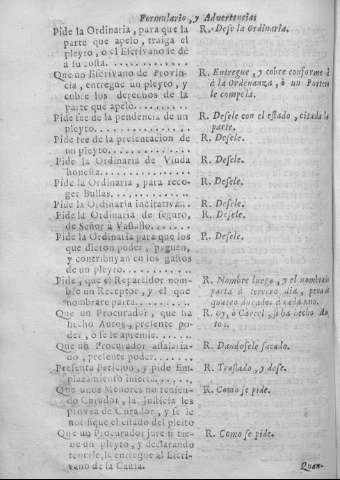 Formulario, y Advertencias
Pide la Ordinaria, para que la R. Dese la Ordinaria.
parte que apelo, traiga el
pleyto, ò el Escrivano le dè
à su costa.
Que un Escrivano de Provin- R. Entregue, y cobre conforme à
cia, entregue un pleyto, y la Ordenanza, ò un Portero
cobre los derechos de la le compela.
parte que apelo.
Pide fee de la pendencia de un R. Desele con el estado, citada la
pleyto. parte.
Pide fee de la presentacion de R. Desele.
un pleyto.
Pide la Ordinaria de Viuda R. Desele.
honesta.
Pide la Ordinaria, para reco- R. Desele.
ger Bullas.
Pide la Ordinaria incitativa. R. Desele.
Pide la Ordinaria de seguro, R. Desele.
de Señor à Vassallo.
Pide la Ordinaria para que los R. Desele.
que dieron poder, paguen,
y contribuyan en los gastos
de un pleyto.
Pide, que el Repartidor nom- R. Nombre luego, y el nombrado
bre un Receptor, y el que parta à tercero dia, pena de
nombrare parta. quatro ducados à cada uno.
Que un Procurador, que ha R. oy, ò Carcel, si ha hecho Au-
hecho Autos, presente po- tos.
der, ò se le apremie.
Que un Procurador assalaria- R. Dandosele sacalo.
do, presente poder.
Presenta peticion, y pide Em- R. Traslado, y dese.
plazamiento inserta.
Que unos Menores no tenien- R. Como se pide.
do Curador, la Justicia les
provea de Curador, y se le
notifique el estado del pleito
Que un Procurador jure si tie- R. Como se pide.
ne un pleyto, y declarando
tenerle, le entregue al Escri-
vano de la Causa.
Quan-